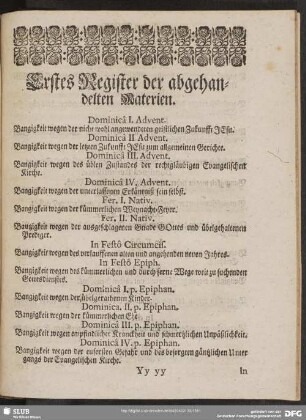 Erstes Register der abgehan-
delten Materien.
Dominicâ I. Advent.
Bangigkeit wegen der nicht wohl angewendeten geistlichen Zukunfft JEsu.
Dominicâ II Advent.
Bangigkeit wegen der letzten Zukunfft JEsu zum allgemeinen Gerichte.
Dominicâ III. Advent.
Bangigkeit wegen des üblen Zustandes der rechtgläubigen Evangelischen
Kirche.
Dominicâ IV. Advent.
Bangigkeit wegen der unterlassenen Erkäntniß sein selbst.
Fer. I. Nativ.
Bangigkeit wegen der kümmerlichen Weynacht-Feyer.
Fer. II. Nativ.
Bangigkeit wegen der ausgeschlagenen Gnade GOttes und übelgehaltenen
Prediger.
In Festô Circumcis.
Bangigkeit wegen des verlauffenen alten und angehenden neuen Jahres.
In Festô Epiph.
Bangigkeit wegen des kümmerlichen und durch ferne Wege weit zu suchenden
Gottesdienstes.
Dominicâ I. p. Epiphan.
Bangigkeit wegen der übelgerathenen Kinder.
Dominica. II. p. Epiphan.
Bangigkeit wegen der kümmerlichen Ehe.
Dominicâ III. p. Epiphan.
Bangigkeit wegen empfindlicher Kranckheit und schmertzlichen Unpäßlichkeit.
Dominicâ IV. p. Epiphan.
Bangigkeit wegen der eusersten Gefahr und des besorgten gäntzlichen Unter-
gangs der Evangelischen Kirche.
Yy yy In
SLUB